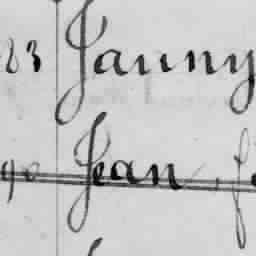 83 Janny
90 Jean, f